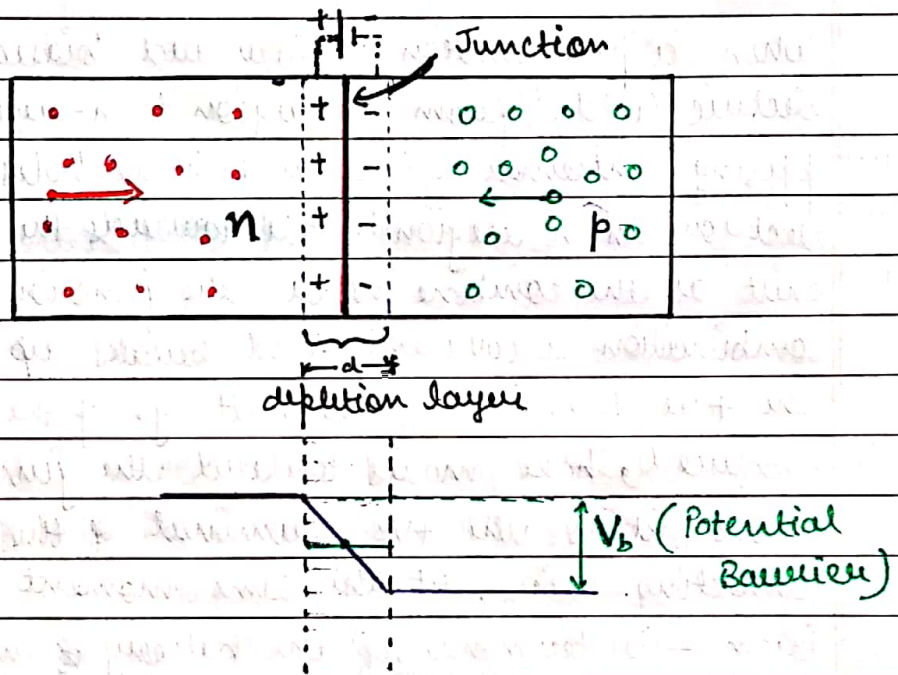 +
Junction
+ -
+ -
n + - p
+ -
d
depletion layer
Vb (Potential
Barrier)